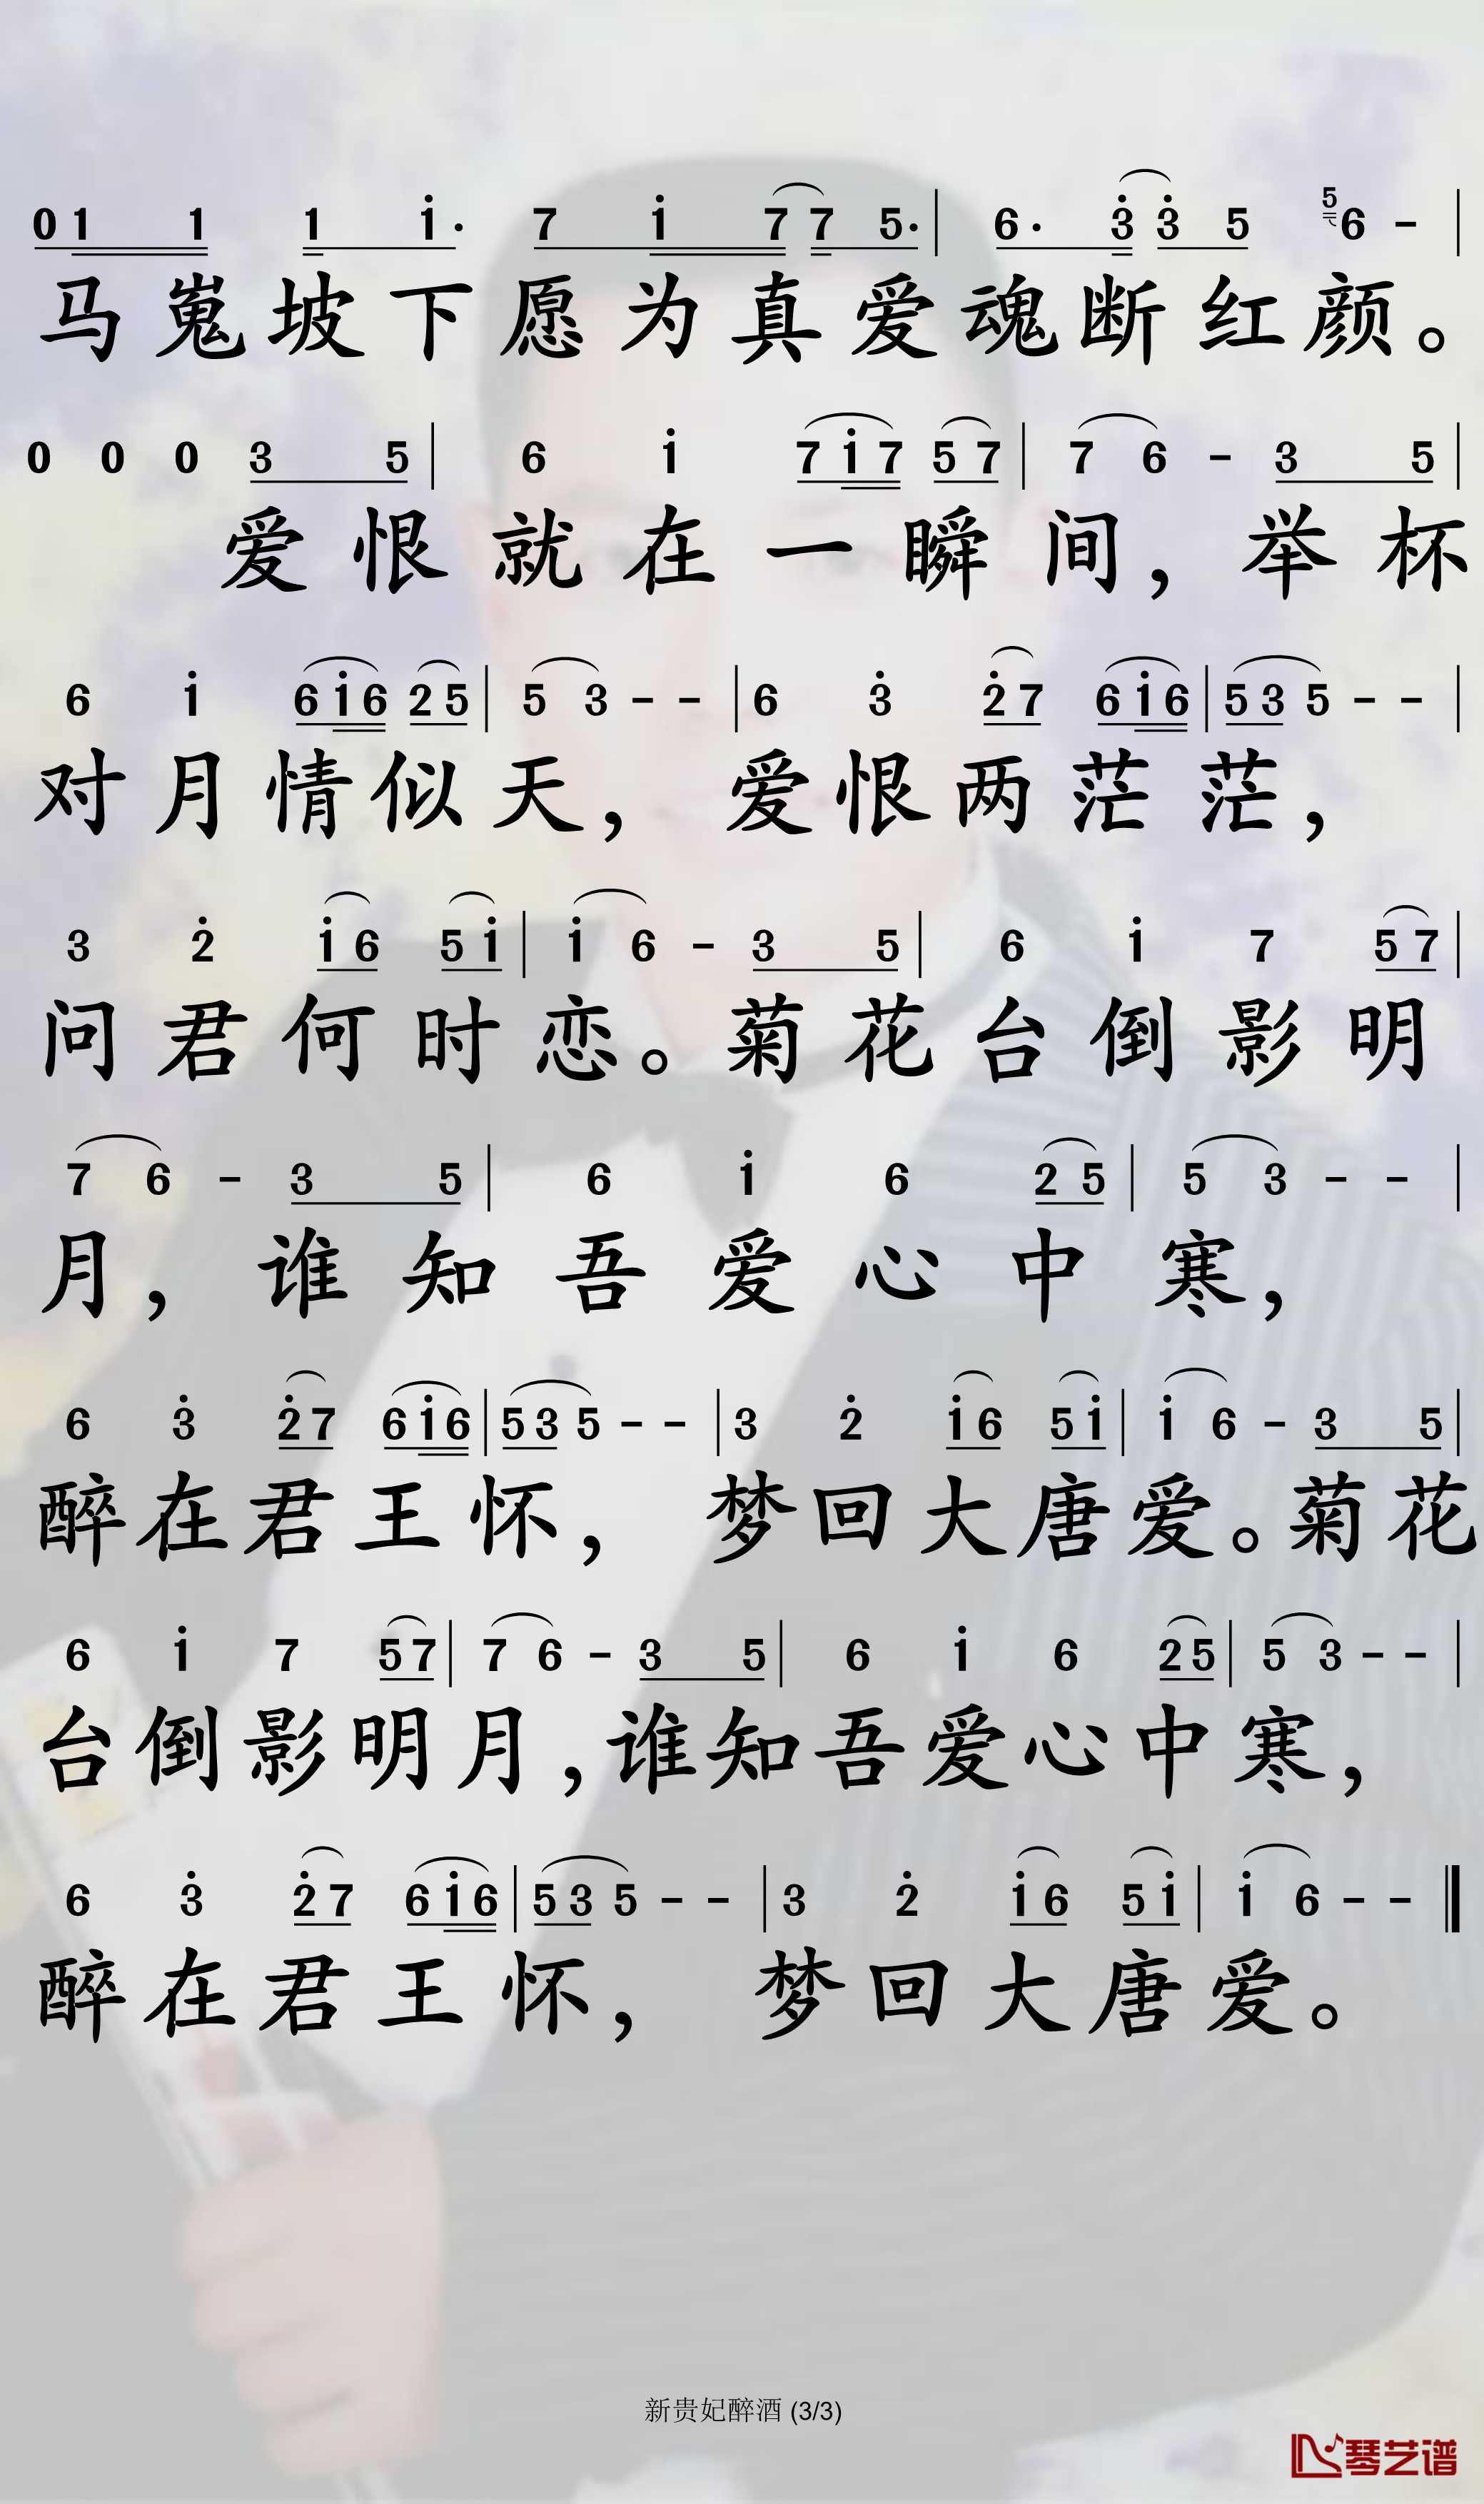 0 1 1 1 i· 7 i 7 7 5· | 6· 3̇ 3̇ 5 5 6 - |
马嵬坡下愿为真爱魂断红颜。
0 0 0 3 5 | 6 i 7 i 7 5 7 | 7 6 - 3 5 |
爱恨就在一瞬间，举杯
6 i 6 i 6 2 5 | 5 3 - - | 6 3̇ 2̇ 7 6 i 6 | 5 3 5 - - |
对月情似天，爱恨两茫茫，
3 2̇ i 6 5 i | i 6 - 3 5 | 6 i 7 5 7 |
问君何时恋。菊花台倒影明
7 6 - 3 5 | 6 i 6 2 5 | 5 3 - - |
月，谁知吾爱心中寒，
6 3̇ 2̇ 7 6 i 6 | 5 3 5 - - | 3 2̇ i 6 5 i | i 6 - 3 5 |
醉在君王怀，梦回大唐爱。菊花
6 i 7 5 7 | 7 6 - 3 5 | 6 i 6 2 5 | 5 3 - - |
台倒影明月，谁知吾爱心中寒，
6 3̇ 2̇ 7 6 i 6 | 5 3 5 - - | 3 2̇ i 6 5 i | i 6 - - ‖
醉在君王怀，梦回大唐爱。
新贵妃醉酒 (3/3)
琴艺谱